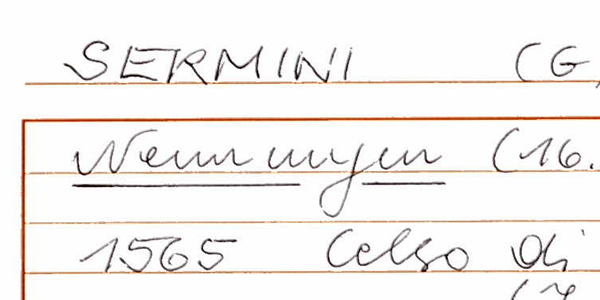 SERMINI (G,
Nennungen (16.
1565 Celso di